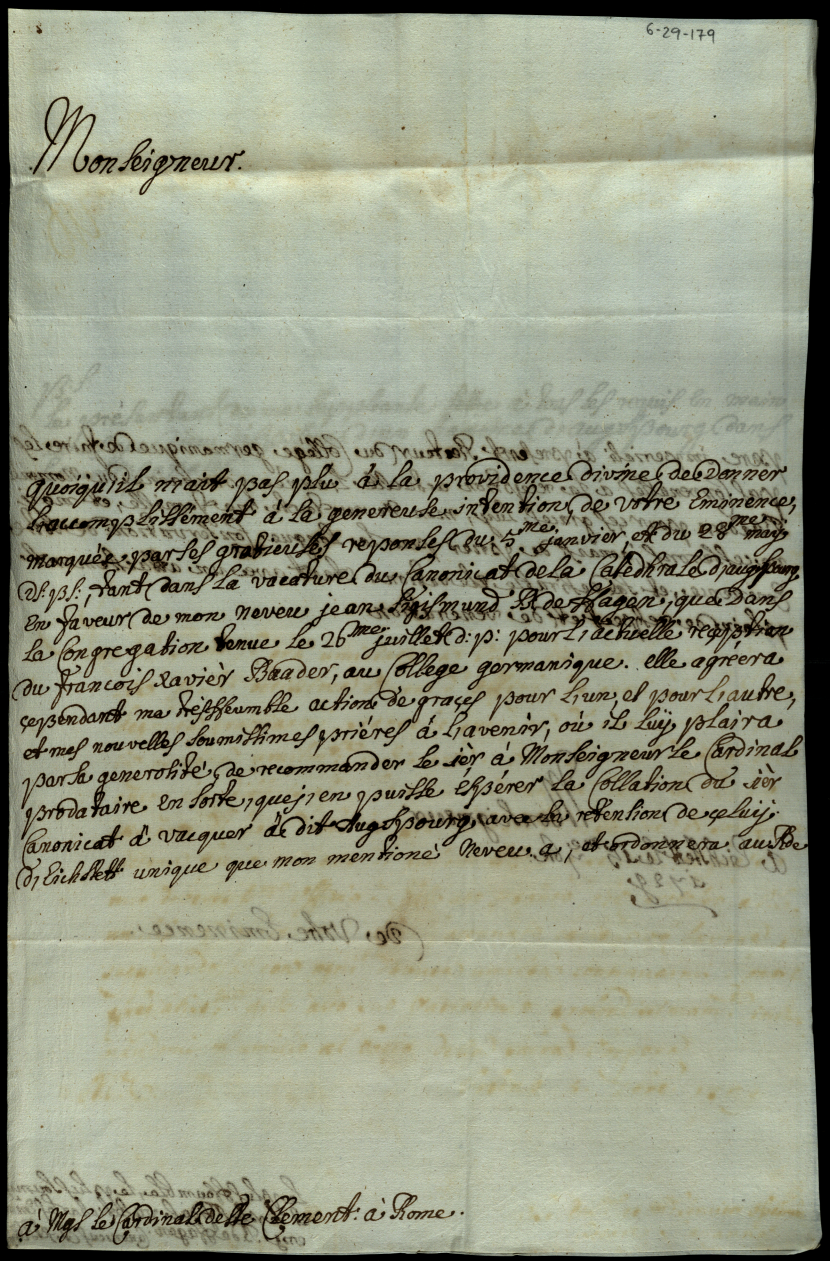 6-29-179
Monseigneur.
quoiqu'il n'ait pas plu à la providence divine, de donner
l'accomplissément à la genereuse intention de votre Eminence,
marquée par ses gratieuses reponses du 5me janvier, et du 28me maij
d: p:, tant dans la vacature du Canonicat de la Cathédrale d'augsbourg
en faveur de mon neveu jean Sigismund B. de Hagen, que dans
la Congregation tenue le 26me juillet d: p: pour l'actuelle reception
du françois Xavièr Baader, au College germanique. elle agréera
cependant ma trésheumble action de graçes pour l'un, et pour l'autre,
et mes nouvelles soumissimes priéres à l'avenir, où il luij plaira
par sa generosité, de recommander le 1èr à Monseigneur le Cardinal
prodataire en sorte, que j'en puisse éspérer la Collation du 1èr
Canonicat à vacquer à dit Augspourg, avec la retention de çeluij
d'Eichstett unique que mon mentioné Neveu a, et ordonnera au P. de
à Mgs le Cardinal delle Clement: à Rome.
De Votre Eminence